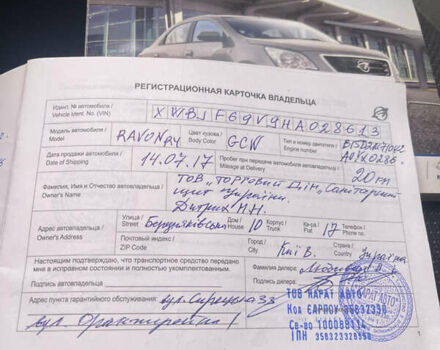 РЕГИСТРАЦИОННАЯ КАРТОЧКА ВЛАДЕЛЬЦА
Идент. № автомобиля /
Vehicle Ident. No. (VIN)
XWBJF69V9HA028613
Модель автомобиля /
Model
RAVON R4
Цвет кузова /
Body Color
GCW
Тип и номер двигателя /
Engine number
Дата продажи автомобиля /
Date of Shipping
14.07.17
Пробег при передаче автомобиля автовладельцу /
Mileage at Delivery
20 км
Фамилия, Имя и Отчество автовладельца /
Owner's Name
ТОВ "Торговий Дім, Санітарний
щит України.
Дитрих М.Н.
Адрес автовладельца /
Owner's Address
Улица /
Street
Дом /
House
10
Корпус /
Кв. /
Flat
17
Телефон /
Почтовый индекс /
ZIP Code
Город /
City
Київ.
Страна /
Country
Україна
Настоящим подтверждаю, что транспортное средство передано
мне в исправном состоянии и полностью укомплектованным.
Фамилия дилера:
Подпись автовладельца /
Подпись дилера:
Адрес пункта гарантийного обслуживания:
ТОВ КАРАТ АВТО
Код ЄДРПОУ 35832336
Св-во 100088114
ІПН 358323326558